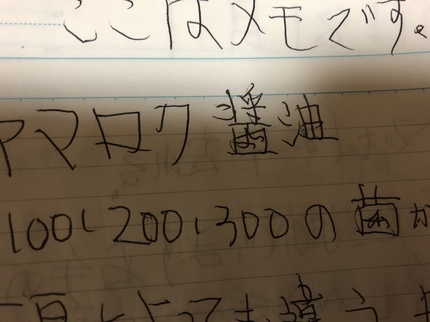 ここはメモです。
ヤマロク醤油
100、200、300の歯か
も違う